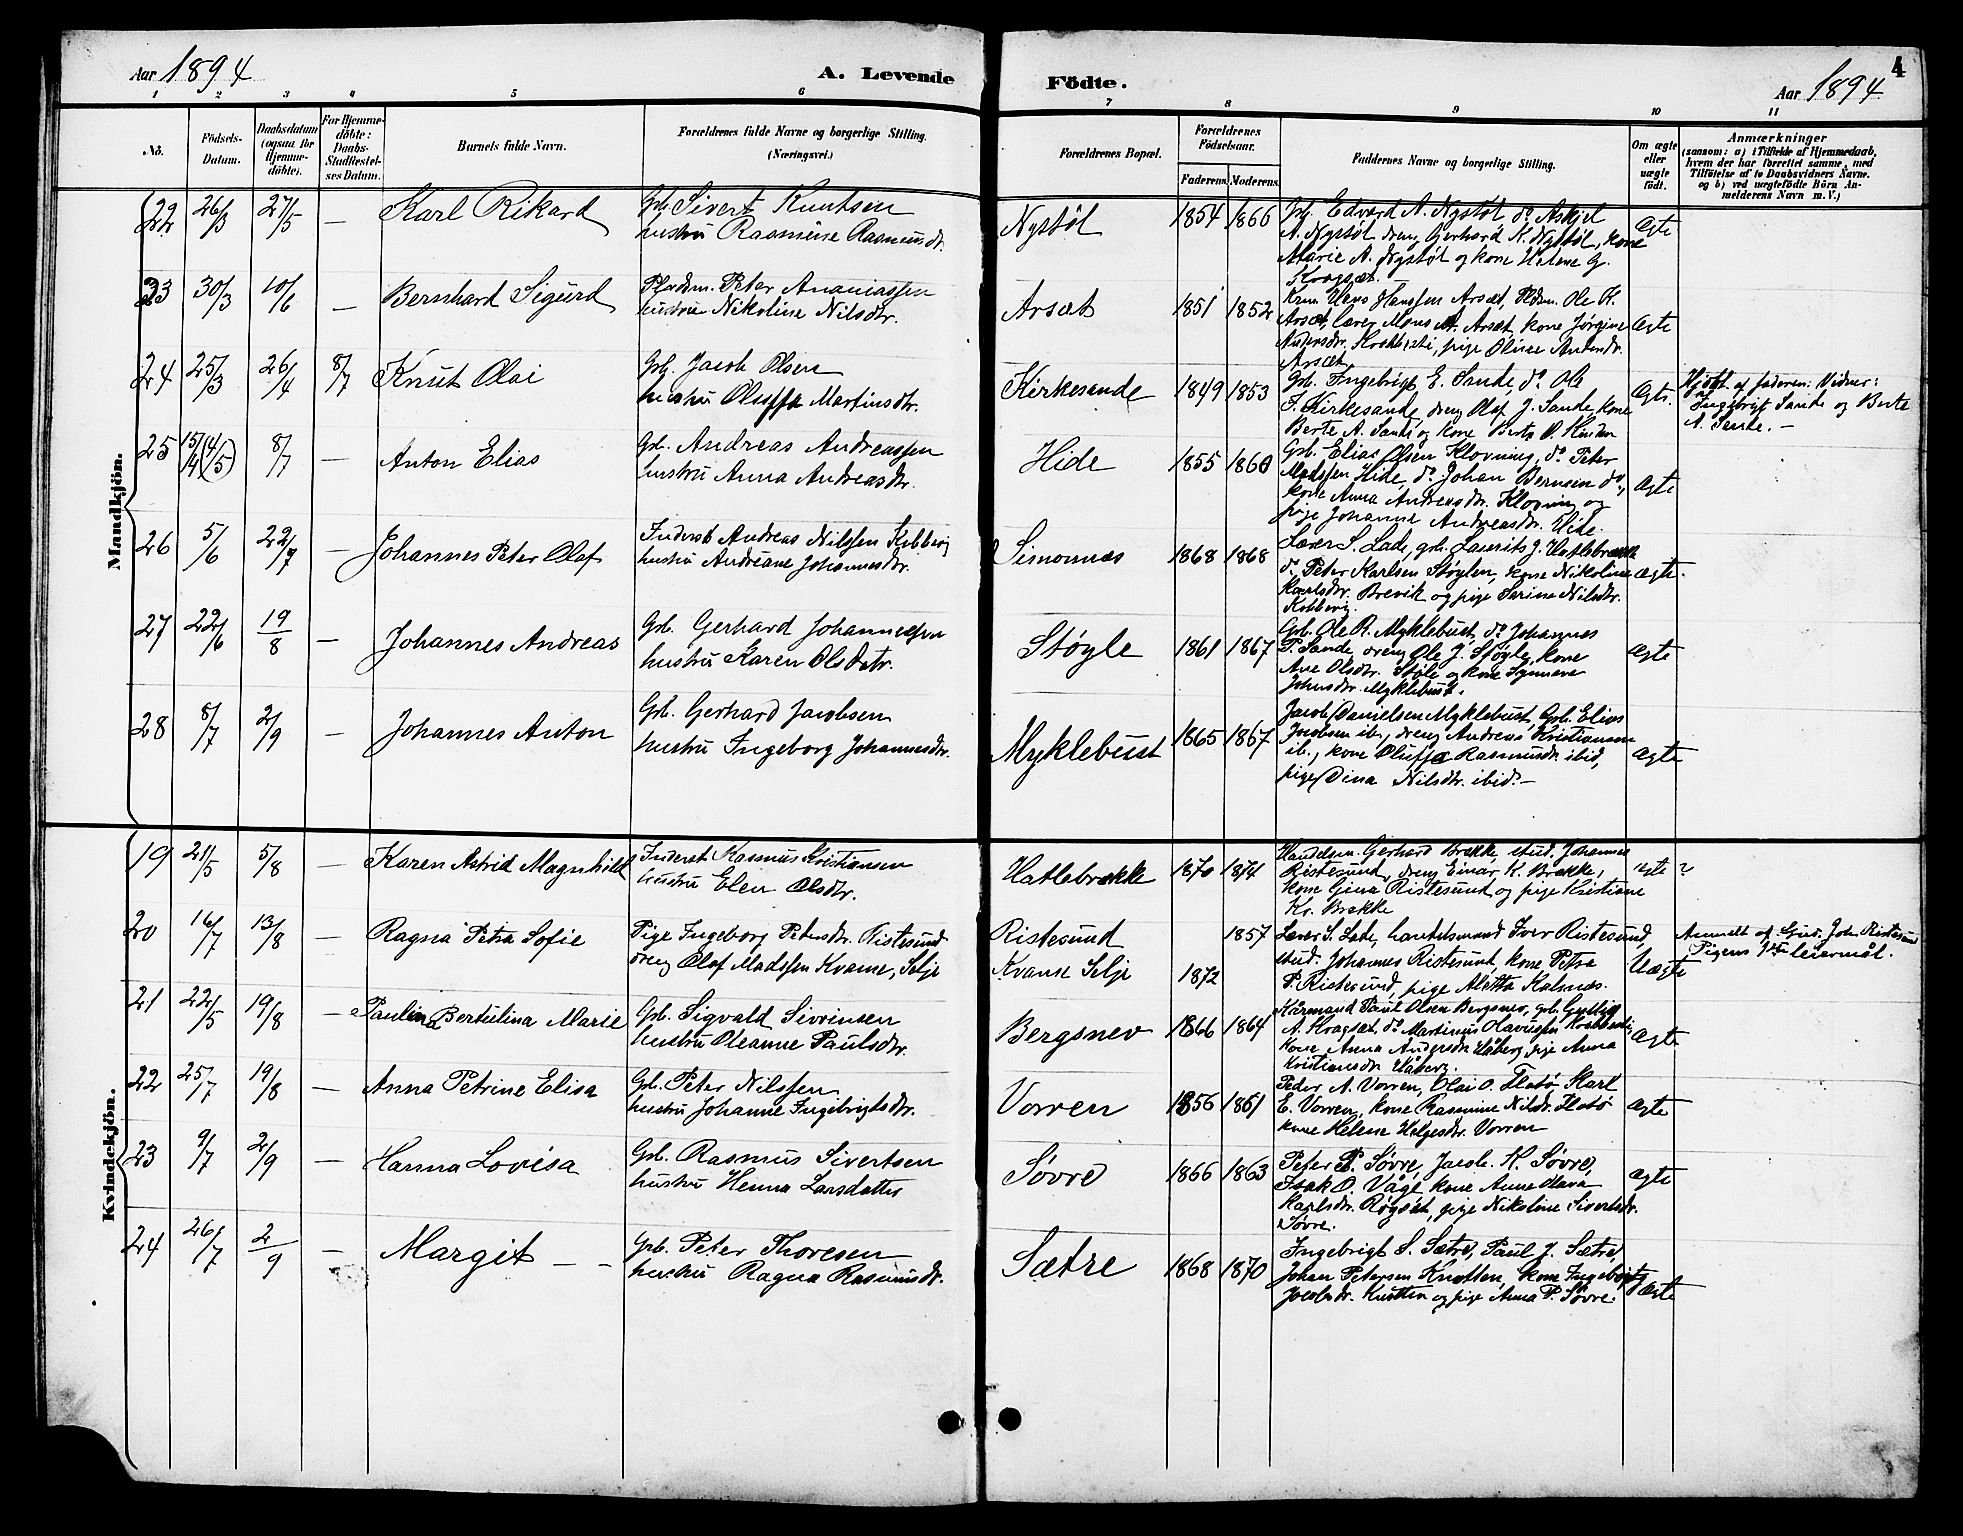 Aar 1894
A. Levende
Födte.
Aar 1894
4
1 2 3 4 5 6 7 8 9 10 11
No.
Födsels-Datum.
Daabsdatum (ogsaa for Hjemmedöbte).
For Hjemmedöbte: Daabs-Stadfæstelses Datum.
Barnets fulde Navn.
Forældrenes fulde Navne og borgerlige Stilling. (Næringsvei.)
Forældrenes Bopæl.
Forældrenes Födselsaar.
Faderens. Moderens.
Faddernes Navne og borgerlige Stilling.
Om ægte eller uægte födt.
Anmærkninger
(saasom: a) i Tilfælde af Hjemmedaab, hvem der har forrettet samme, med Tilföielse af to Daabsvidners Navne. og b) ved uægtefödte Börn Anmelderens Navn m. V.)
Mandkjön.
22 26/3 27/5 — Karl Rikard
Gbr. Sivert Knutsen
hustru Rasmine Rasmusdr.
Nystøl 1854 1866
Gbr. Edvard A. Nystøl, do Askjel
A. Nystøl, dreng Gerhard N. Nystøl, kone
Marie A. Nystøl og kone Helene G.
Kragsæt.
ægte
23 30/3 10/6 — Bernhard Sigurd
Peter Ananiassen
hustru Nikoline Nilsdtr.
Arsæt 1851 1852
Hans Hanssen Arsæt, Ole K.
Arsæt, lærer Mons A. Arsæt, kone Jørgine
pige Oline Andersdr.
Arsæt
ægte
24 25/3 26/4 8/7 Knut Olai
Gbr. Jacob Olsen
hustru Oluffa Martinsdtr.
Kirkesande 1849 1853
Gbr. Ingebrigt E. Sande, do Ole
J. Kirkesande, dreng Olaf J. Sande, kone
Berte A. Sande og kone Berte O.
Ægte
Hjdbt. af faderen. Vidner:
Ingebrigt Sande og Berte
A. Sande. —
25 15/4 (4/5) 8/7 — Anton Elias
Gbr. Andreas Andreassen
hustru Anna Andreasdr.
Hide 1855 1860
Gbr. Elias Olsen Klovning, do Peter
Madssen Hide, do Johan Bernsen do,
kone Anna Andreasdr. Klovning og
pige Johanne Andreasdr. Hide.
ægte
26 5/6 22/7 — Johannes Peter Olaf
Inderst Andreas Nilssen Kobberig
hustru Andreane Johannesdr.
Simonnæs 1868 1868
Lærer S. Lade, gbr. Laurits J. Hatlebrække
do Peter Karlsen Støylen, kone Nikoline
Karlsdr. Brevik og pige Sarine Nilsdtr.
Kobberig.
ægte.
27 22/6 19/8 — Johannes Andreas
Gbr. Gerhard Johannessen
hustru Karen Olsdatr.
Støyle 1861 1867
Gbr. Ole R. Myklebust, do Johannes
P. Sande, dreng Ole J. Støyle, kone
Ane Olsdtr. Støle og kone Synneve
Johnsdtr. Myklebust.
Ægte
28 8/7 2/9 — Johannes Anton
Gbr. Gerhard Jacobsen
hustru Ingeborg Johannesdr.
Myklebust 1865 1867
Jacob Danielsen Myklebust, Gbr. Elias
Jacobsen ib., dreng Andreas Kristiansen
ib., kone Oluffa Rasmusdr. ibid,
pige Dina Nilsdtr. ibid. —
ægte
Kvindekjön.
19 21/5 5/8 — Karen Astrid Magnhild
Inderst Rasmus Kristiansen
hustru Elen Olsdtr.
Hatlebrække 1870 1874
Handelsm. Gerhard Brække, stud. Johannes
Ristesund, dreng Einar K. Brække,
kone Gina Ristesund og pige Kristiane
Kr. Brække
ægte ?
20 16/7 13/8 — Ragna Petra Sofie
Pige Ingeborg Petersdr. Ristesund
dreng Olaf Madssen Kvame, Selje
Ristesund 1857
Kvame Selje 1872
Lærer S. Lade, handelsmand Iver Ristesund,
stud. Johannes Ristesund, kone Petra
P. Ristesund, pige Aletta Kalnæs.
Uægte
Anmeldt af Joh. Ristesund
Pigens leiermål.
21 22/5 19/8 — Paulina Bertulina Marie
Gbr. Sigvald Sivrinsen
hustru Oleanne Paulsdtr.
Bergsnev 1866 1864
Kårmand Paul Olsen Bergsnev, gbr.
A. Kragsæt, do Martinus Olaussen
kone Anna Andersdr. Håberg, pige Anna
Kristiansdr. Håberg.
Ægte
22 25/7 19/8 — Anna Petrine Elisa
Gbr. Peter Nilssen
hustru Johanne Ingebrigtsdr.
Vorren 1856 1861
Peder A. Vorren, Olai O. Flatø Karl
E. Vorren, kone Rasmine Nilsdr. Flatø
kone Helene Helgesdtr. Vorren
Ægte
23 9/7 2/9 — Hanna Lovisa
Gbr. Rasmus Sivertsen
hustru Henna Larsdatter
Søvre 1866 1863
Peter P. Søvre, Jacob K. Søvre,
Isak O. Våge, kone Anne Olava
Karlsdtr. Røgsæt, pige Nikoline Sivertsdr.
Søvre.
Ægte
24 26/7 2/9 — Margit — —
Gbr. Peter Thoresen
hustru Ragna Rasmusdr.
Sætre 1868 1870
Ingebrigt S. Sætre, Paul J. Sætre,
Johan Petersen Knotten, kone Ingeborg
Jacobsdr. Knotten og pige Anna P. Søvre.
Ægte